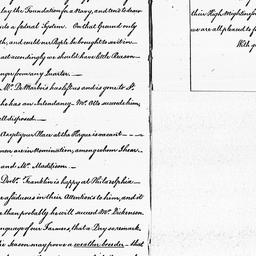 lay the Foundation for a Navy, and tend to draw
side a federal System. On that Ground only
th, and could our People be brought to act in
act accordingly we should have little Reason
nger from any Quarter. —
Mr. DeMarbois has left us and is gone to St.
he has an Intendancy. Mr. Otto succeeds him,
ell disposed. —
your Place at the Hague is vacant - - -
men are in Nomination, among whom I hear
and Mr. Maddison. —
Doctr. Franklin is happy at Philadelphia
assiduous in their Attentions to him, and it
e than probable he will succeed Mr. Dickenson
anguage of our Farmers, that a Day so remark
he Season may prove a weather breeder — that
their High Mightin
we are all pleased to f
With g